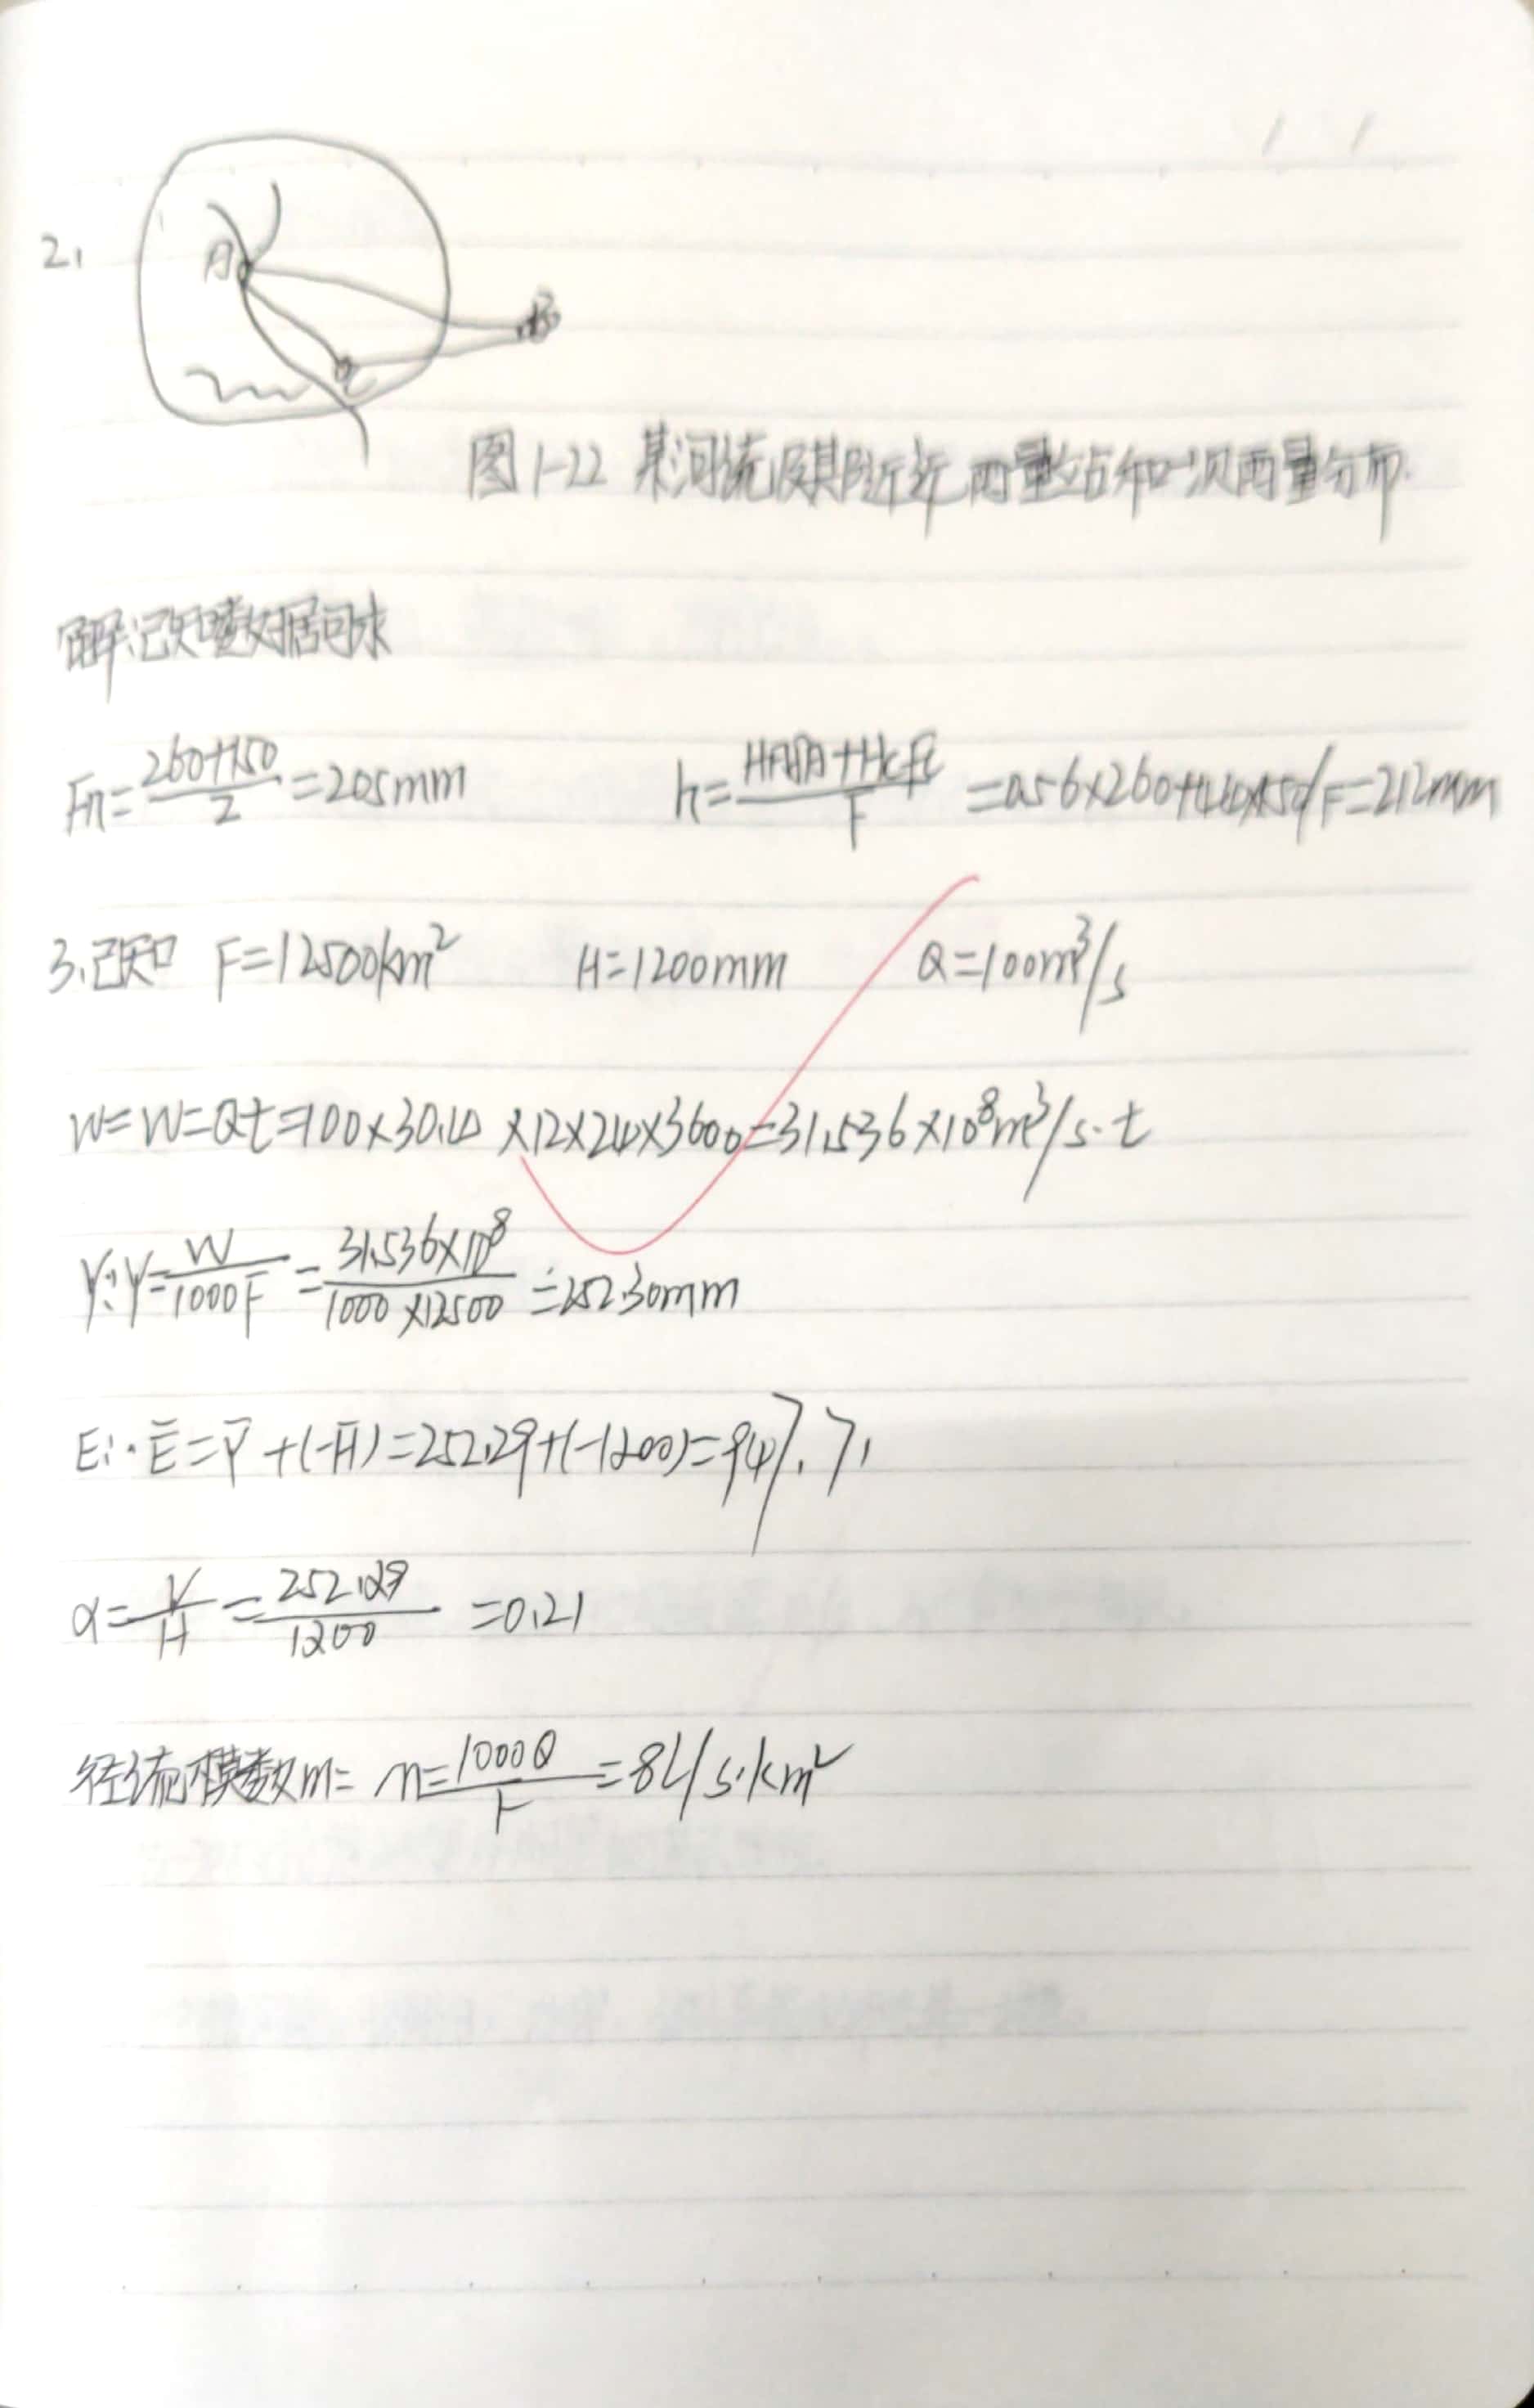 2.
A
B
C
图1-22 某河流及其附近年雨量站和一次雨量分布.
解:已知数据可求
Fn=260+150/2=205mm h=HAfA+Hcfc/F =0.56×260+0.44×150/F=212mm
3.已知 F=12500km² H=1200mm Q=100m³/s
W=W=Qt=100×30.4×12×24×3600=31.536×10⁸m³/s·t
Y:Y=W/1000F=31.536×10⁸/1000×12500=252.30mm
E:·E̅=Y̅+(-H̅)=252.29+(-1200)=947.71
α=Y/H=252.29/1200=0.21
径流模数m= m=1000Q/F=8L/s·km²